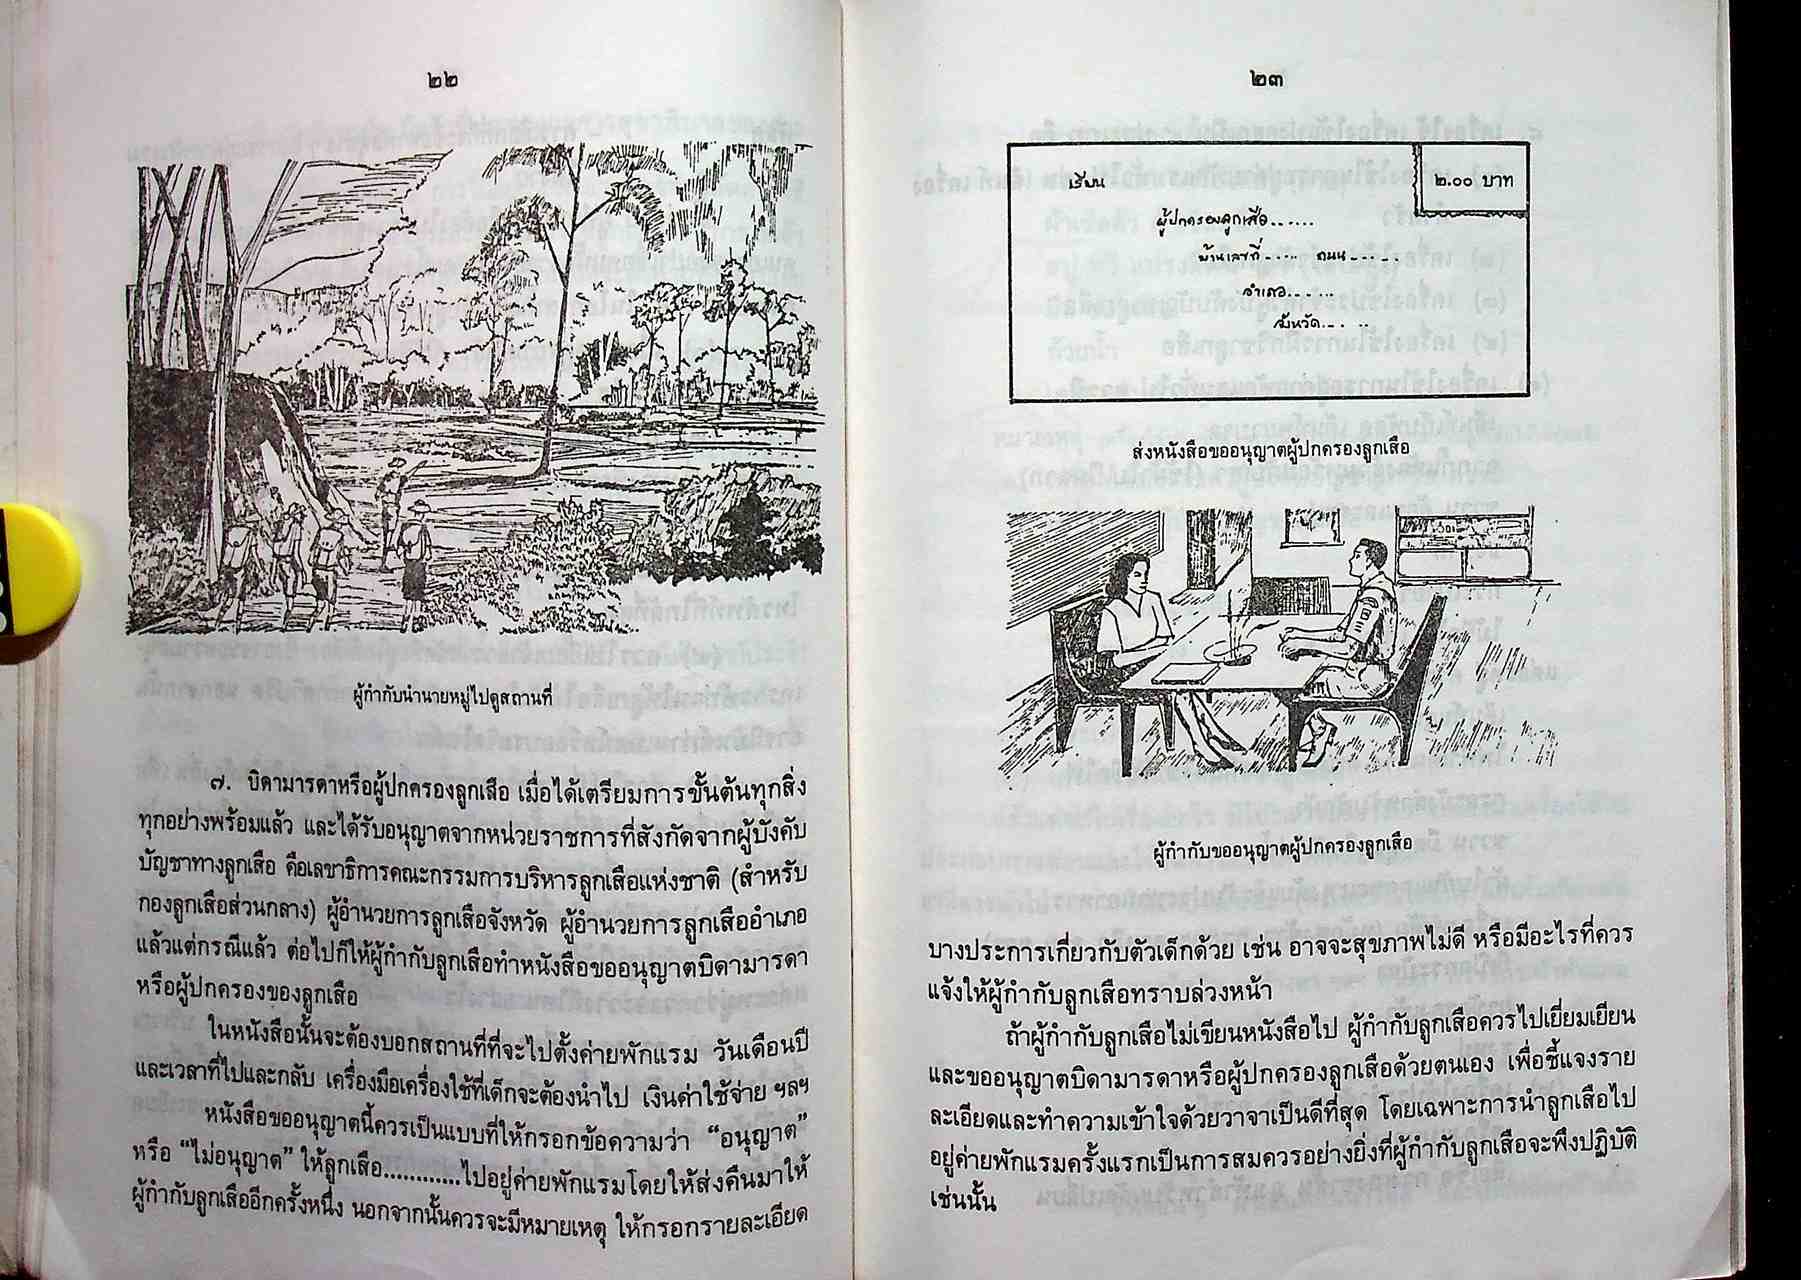 ๒๒
ผู้กำกับนำนายหมู่ไปดูสถานที่
๗. บิดามารดาหรือผู้ปกครองลูกเสือ เมื่อได้เตรียมการขั้นต้นทุกสิ่ง
ทุกอย่างพร้อมแล้ว และได้รับอนุญาตจากหน่วยราชการที่สังกัดจากผู้บังคับ
บัญชาทางลูกเสือ คือเลขาธิการคณะกรรมการบริหารลูกเสือแห่งชาติ (สำหรับ
กองลูกเสือส่วนกลาง) ผู้อำนวยการลูกเสือจังหวัด ผู้อำนวยการลูกเสืออำเภอ
แล้วแต่กรณีแล้ว ต่อไปก็ให้ผู้กำกับลูกเสือทำหนังสือขออนุญาตบิดามารดา
หรือผู้ปกครองของลูกเสือ
ในหนังสือนั้นจะต้องบอกสถานที่ที่จะไปตั้งค่ายพักแรม วันเดือนปี
และเวลาที่ไปและกลับ เครื่องมือเครื่องใช้ที่เด็กจะต้องนำไป เงินค่าใช้จ่าย ฯลฯ
หนังสือขออนุญาตนี้ควรเป็นแบบที่ให้กรอกข้อความว่า “อนุญาต”
หรือ “ไม่อนุญาต” ให้ลูกเสือ............ไปอยู่ค่ายพักแรมโดยให้ส่งคืนมาให้
ผู้กำกับลูกเสืออีกครั้งหนึ่ง นอกจากนั้นควรจะมีหมายเหตุ ให้กรอกรายละเอียด
๒๓
๒.๐๐ บาท
เรียน
ผู้ปกครองลูกเสือ......
บ้านเลขที่..... ถนน.....
อำเภอ......
จังหวัด.....
ส่งหนังสือขออนุญาตผู้ปกครองลูกเสือ
ผู้กำกับขออนุญาตผู้ปกครองลูกเสือ
บางประการเกี่ยวกับตัวเด็กด้วย เช่น อาจจะสุขภาพไม่ดี หรือมีอะไรที่ควร
แจ้งให้ผู้กำกับลูกเสือทราบล่วงหน้า
ถ้าผู้กำกับลูกเสือไม่เขียนหนังสือไป ผู้กำกับลูกเสือควรไปเยี่ยมเยียน
และขออนุญาตบิดามารดาหรือผู้ปกครองลูกเสือด้วยตนเอง เพื่อชี้แจงราย
ละเอียดและทำความเข้าใจด้วยวาจาเป็นดีที่สุด โดยเฉพาะการนำลูกเสือไป
อยู่ค่ายพักแรมครั้งแรกเป็นการสมควรอย่างยิ่งที่ผู้กำกับลูกเสือจะพึงปฏิบัติ
เช่นนั้น